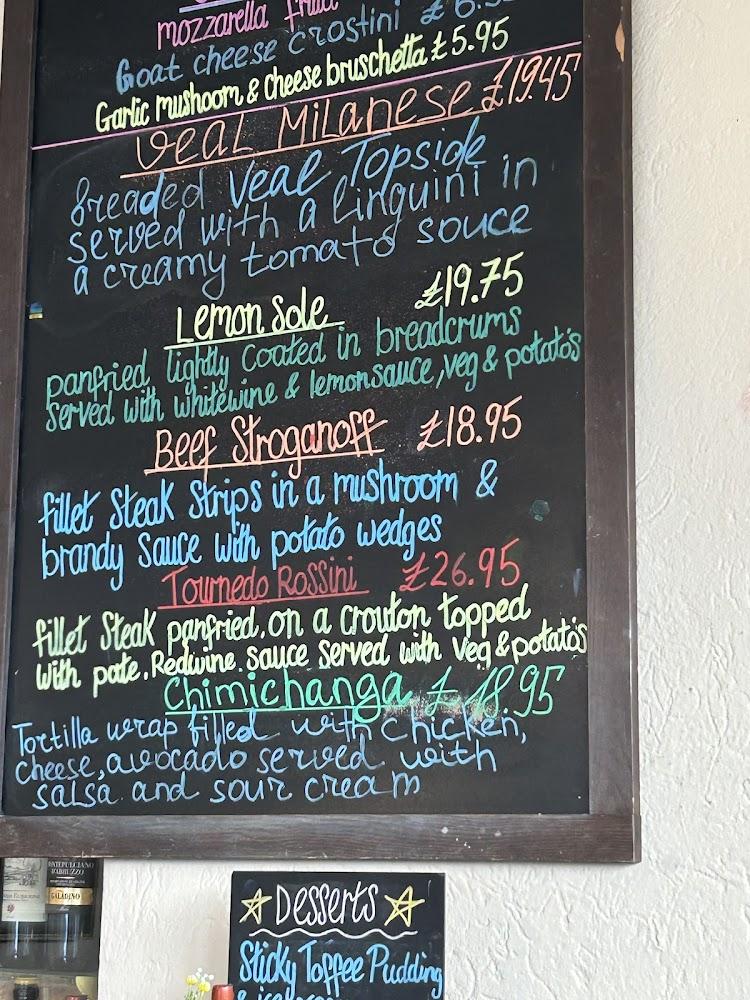 mozzarella fritta
Goat cheese crostini £6.
Garlic mushoom & cheese bruschetta £5.95
Veal Milanese £19.45
Breaded Veal Topside
served with a linguini in
a creamy tomato souce
Lemon Sole £19.75
panfried, lightly coated in breadcrums
served with whitewine & lemonsauce, veg & potato's
Beef Stroganoff £18.95
fillet Steak Strips in a mushroom &
brandy Sauce with potato wedges
Tournedo Rossini £26.95
fillet Steak panfried, on a crouton topped
with pate. Redwine. sauce served with veg & potato's
Chimichanga £18.95
Tortilla wrap filled with chicken,
cheese, avocado served with
salsa and sour cream
MONTEPULCIANO
D'ABRUZZO
GALADINO
Desserts
Sticky Toffee Pudding